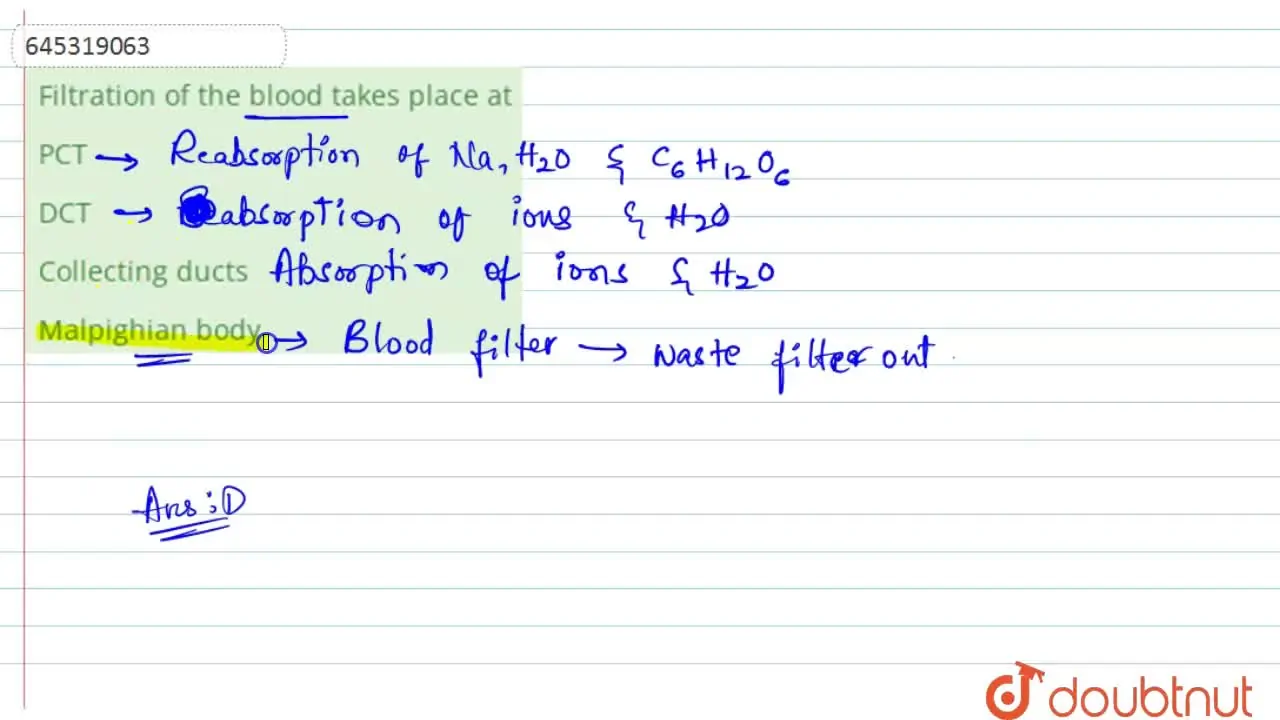 645319063
Filtration of the blood takes place at
PCT → Reabsorption of Na, H2O & C6H12O6
DCT → absorption of ions & H2O
Collecting ducts Absorption of ions & H2O
Malpighian body → Blood filter → waste filter out
Ans : D
doubtnut